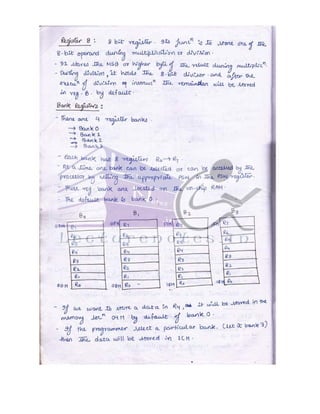 Register B : 8 bit register. Its funcⁿ is to store one of the
8-bit operand during multiplication or division.
- It stores the MSB or higher byte of the result during multiplicⁿ.
- During division, it holds the 8-bit divisor and after the
execuⁿ of division instrucⁿ the remainder will be stored
in reg. B. by default.
Bank Registers :
- There are 4 register banks.
→ Bank 0
→ Bank 1
→ Bank 2
→ Bank 3
- Each bank has 8 registers R0 → R7
- At a time one bank can be selected or can be accessed by the
processor by setting the appropriate PSW in the PSW register.
- These reg bank are located on the on-chip RAM.
- The default bank is bank 0.
B0 B1 B2 B3
07H R7 0FH R7 R7 R7
R6 R6 R6 R6
R5 R5 R5 R5
R4 R4 R4 R4
R3 R3 R3 R3
R2 R2 R2 R2
R1 R1 R1 R1
00H R0 08H R0 10H R0 18H R0
- If we want to store a data in R4, it will be stored in the
memory locⁿ 04H by default of bank 0.
- If the programmer select a particular bank. (Let it bank 3)
then the data will be stored in 1CH.